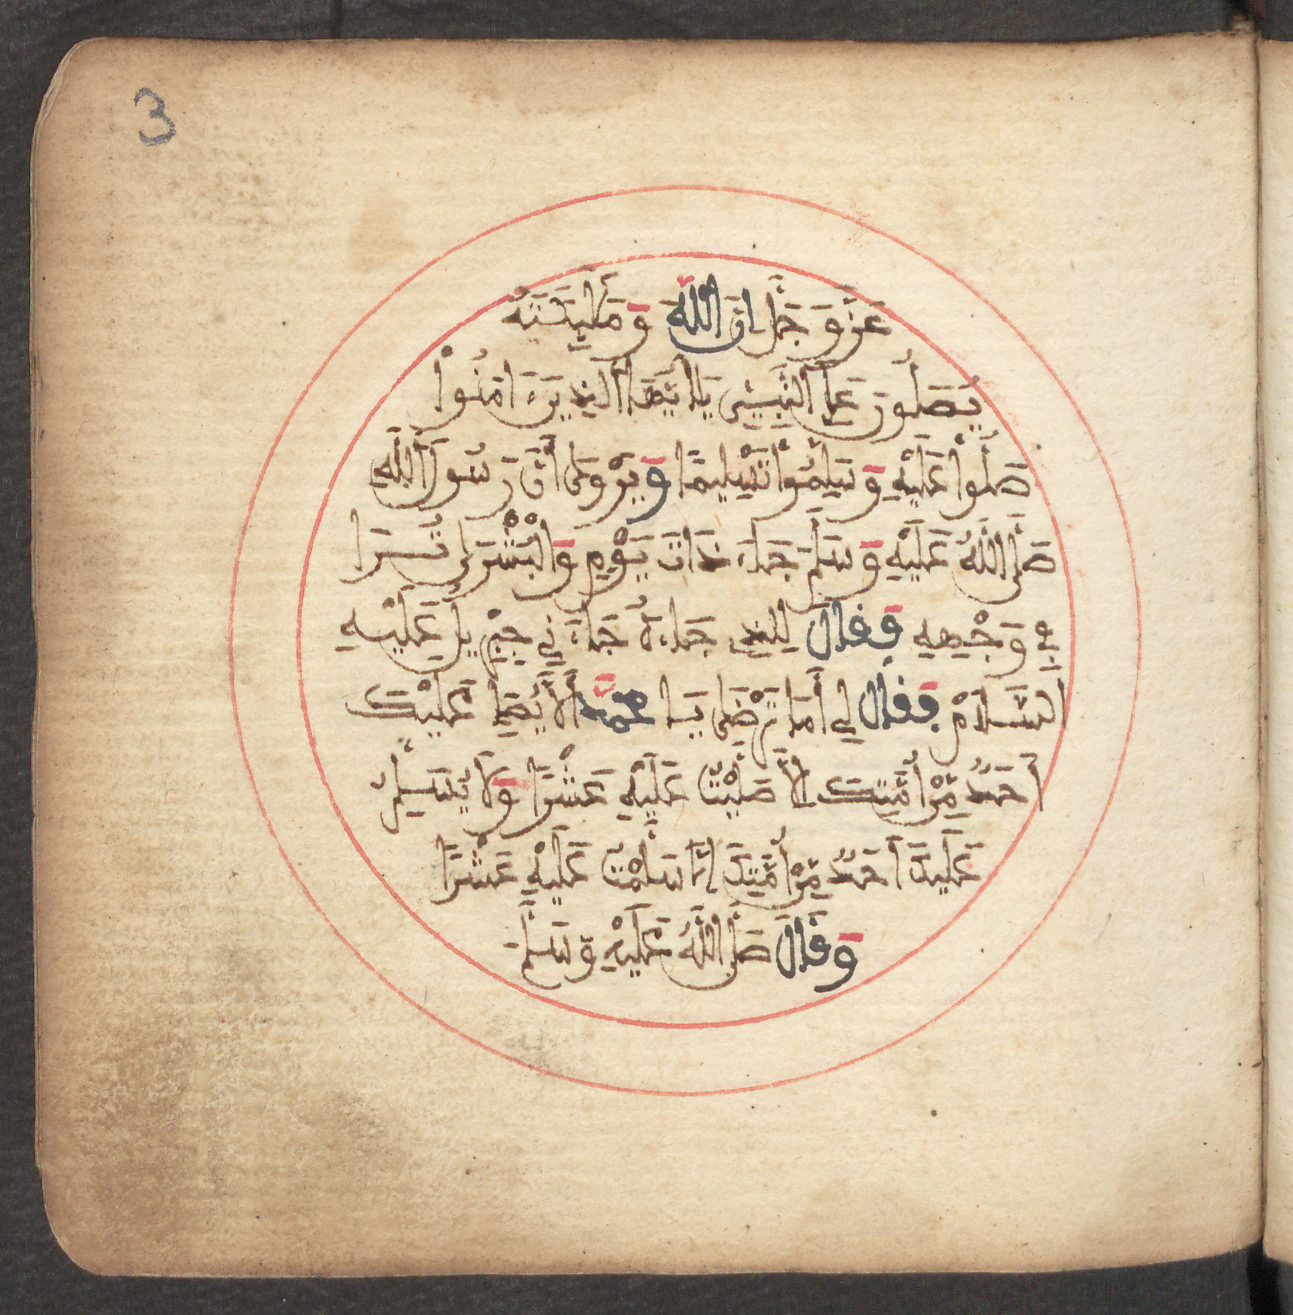 3
عَزَّ وَجَلَّ إِنَّ اللَّهَ وَمَلَٰٓئِكَتَهُ
يُصَلُّونَ عَلَى ٱلنَّبِيِّ يَٰٓأَيُّهَا ٱلَّذِينَ ءَامَنُوا
صَلُّوا عَلَيْهِ وَسَلِّمُوا تَسْلِيمًا وَيُرْوَى أَنَّ رَسُولَ اللَّهِ
صَلَّى اللَّهُ عَلَيْهِ وَسَلَّمَ جَاءَ ذَاتَ يَوْمٍ وَالْبُشْرَى تُرَا
فِي وَجْهِهِ فَقَالَ لِلَّذِي جَاءَهُ جَاءَنِي جِبْرِيلُ عَلَيْهِ
السَّلَامُ فَقَالَ لِي أَمَا تَرْضَى يَا مُحَمَّدُ أَلَّا يُصَلِّي عَلَيْكَ
أَحَدٌ مِنْ أُمَّتِكَ إِلَّا صَلَّيْتُ عَلَيْهِ عَشْرًا وَلَا يُسَلِّمُ
عَلَيْكَ أَحَدٌ مِنْ أُمَّتِكَ إِلَّا سَلَّمْتُ عَلَيْهِ عَشْرًا
وَقَالَ صَلَّى اللَّهُ عَلَيْهِ وَسَلَّمَ